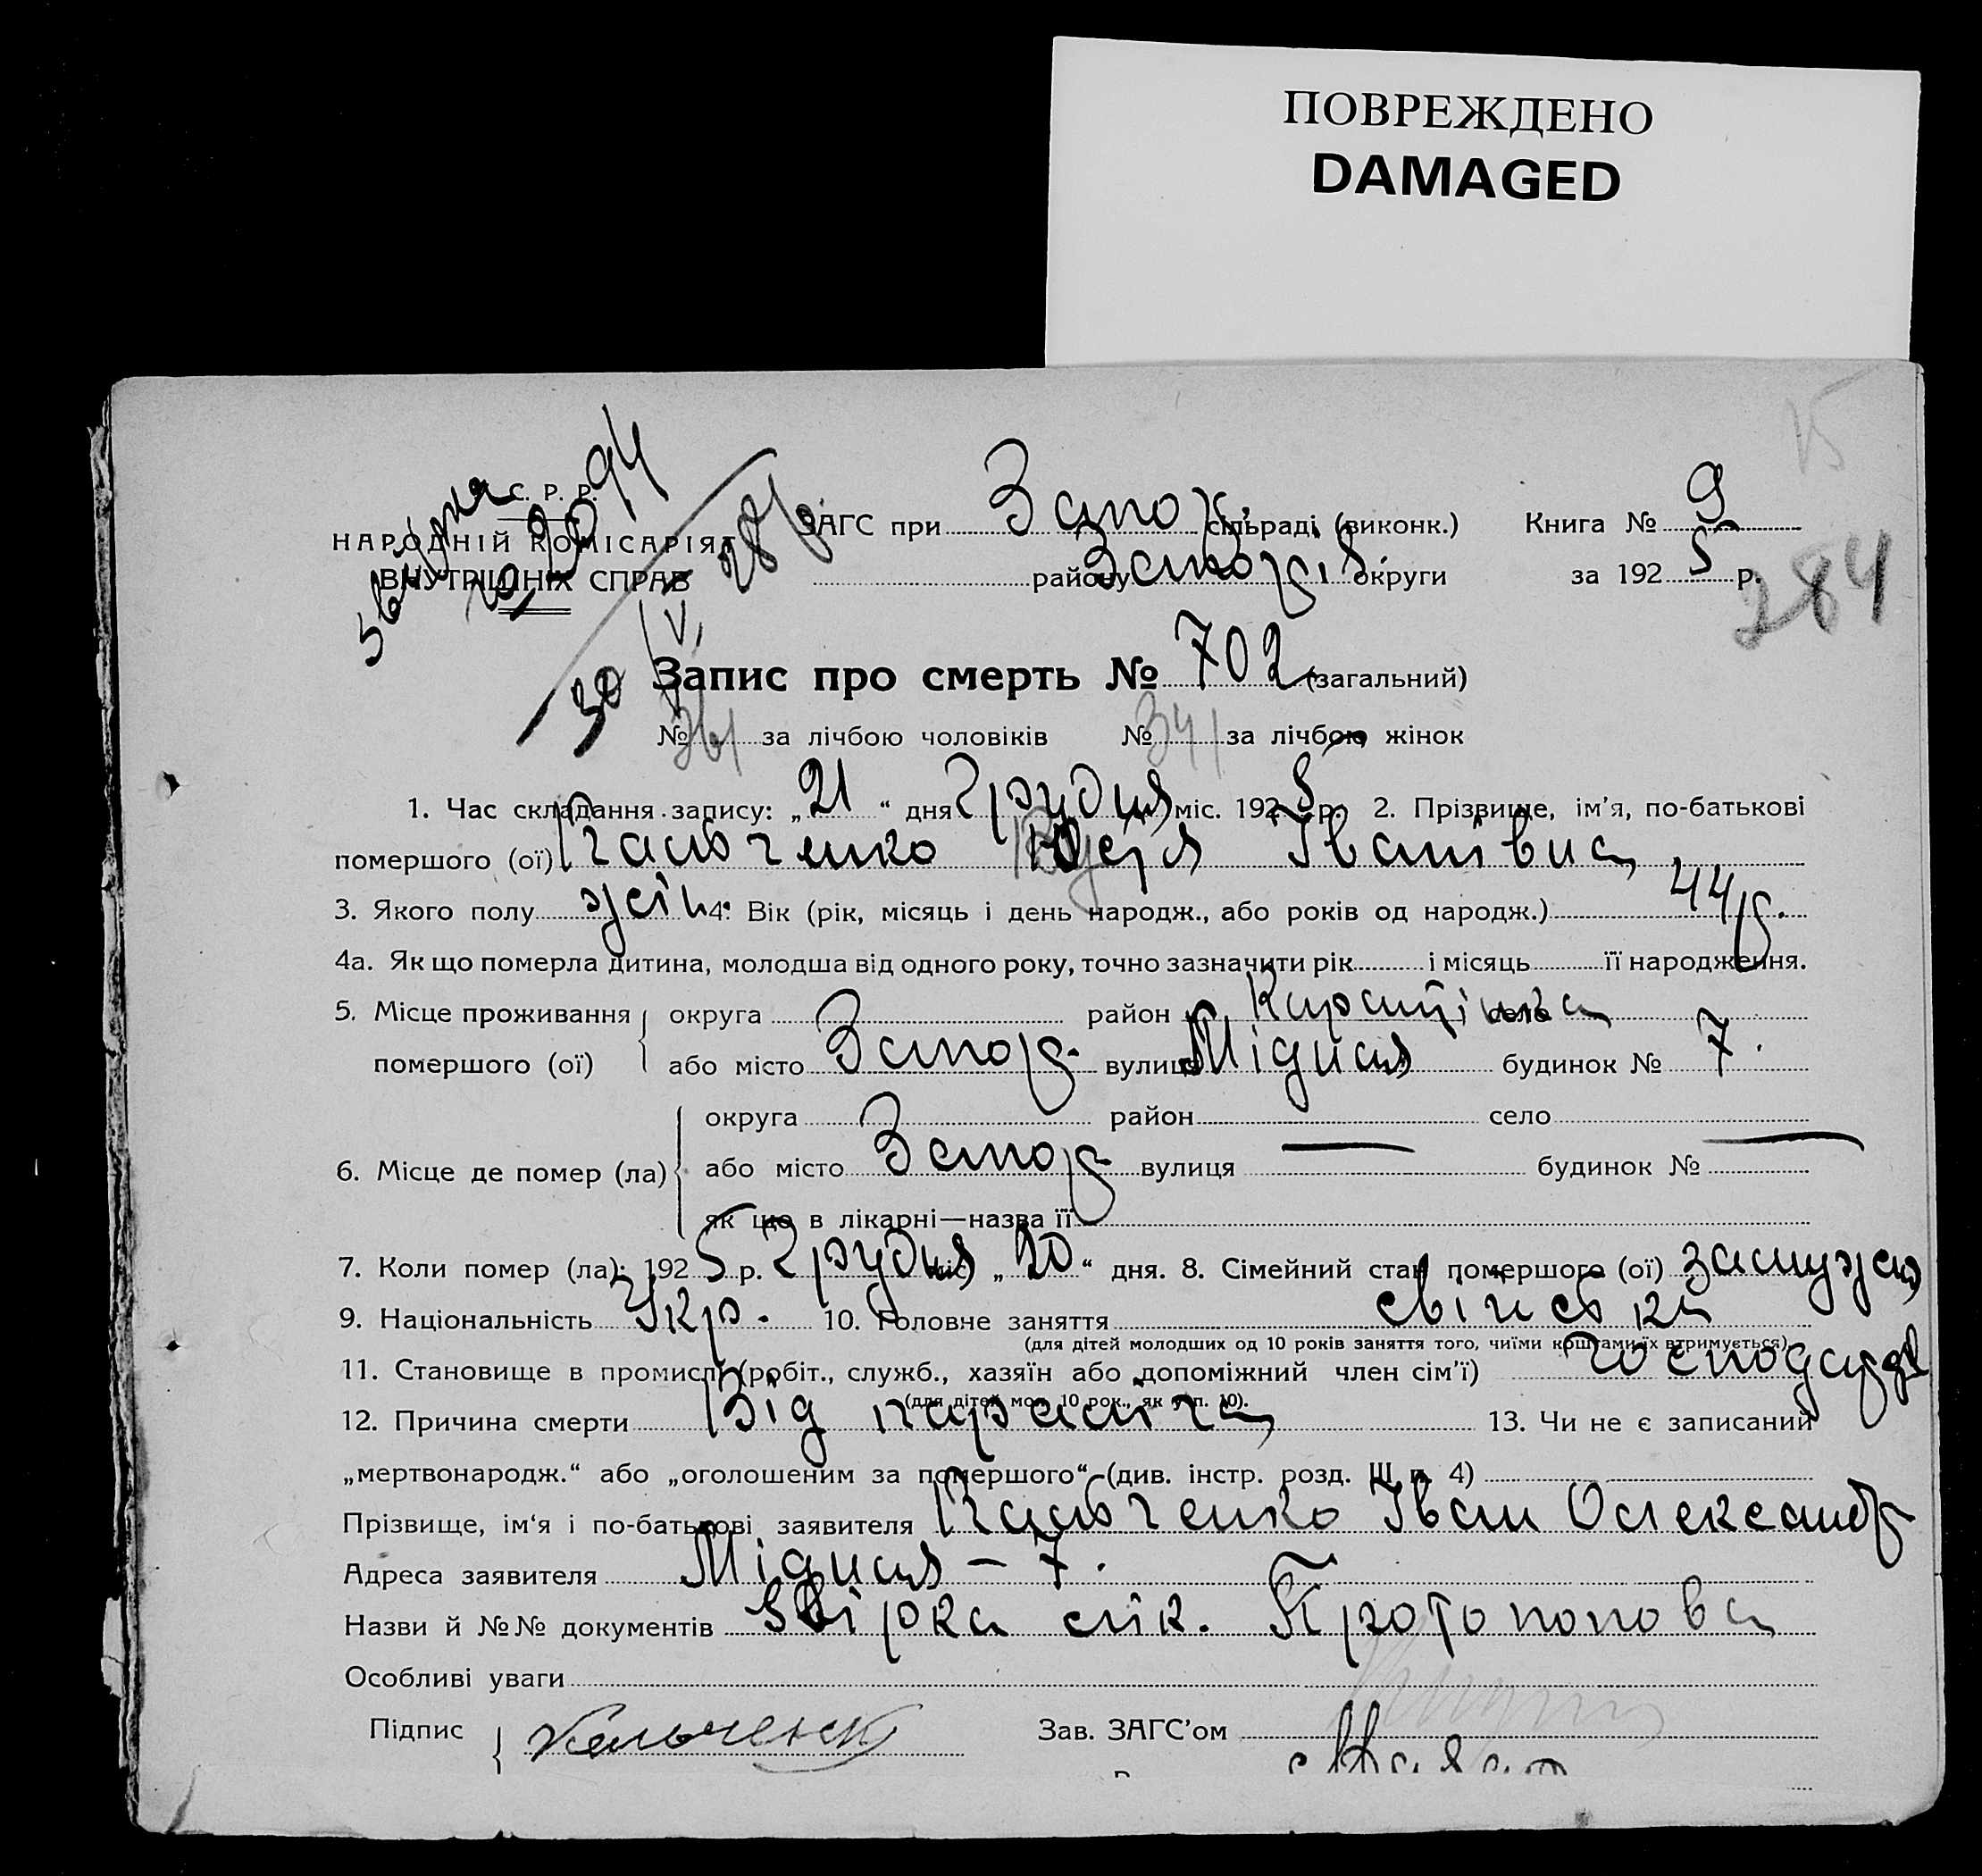 ПОВРЕЖДЕНО
DAMAGED
С. Р. Р.
НАРОДНІЙ КОМІСАРІЯТ
ВНУТРІШНІХ СПРАВ
ЗАГС при Запоріз. сільраді (виконк.) Книга № 9
району Запоріз. округи за 1925 р.
284
Запис про смерть № 702 (загальний)
№ 361 за лічбою чоловіків № 341 за лічбою жінок
1. Час складання запису: „21“ дня Грудня міс. 1925 р. 2. Прізвище, ім'я, по-батькові
помершого (ої) Кальченко Іванівна
3. Якого полу жін. 4. Вік (рік, місяць і день народж., або років од народж.) 44 р.
4а. Як що померла дитина, молодша від одного року, точно зазначити рік і місяць її народження.
5. Місце проживання округа район село
помершого (ої) або місто Запор. вулиця Мідная будинок № 7.
округа район село
6. Місце де помер (ла) або місто Запор. вулиця — будинок № —
як що в лікарні—назва її
7. Коли помер (ла): 1925 р. Грудня міс. „20“ дня. 8. Сімейний стан помершого (ої) замужня
9. Національність Укр. 10. Головне заняття свійська
(для дітей молодших од 10 років заняття того, чиїми коштами їх втримується)
11. Становище в промислі (робіт., служб., хазяїн або допоміжний член сім'ї) господар
(для дітей мол. 10 рок., як у п. 10).
12. Причина смерти Від параліча 13. Чи не є записаний
„мертвонародж.“ або „оголошеним за помершого“ (див. інстр. розд. III п. 4)
Прізвище, ім'я і по-батькові заявителя Кальченко Іван Олександр
Адреса заявителя Мідная – 7.
Назви й №№ документів лік. Протопопова
Особливі уваги
Підпис Кальченко Зав. ЗАГС'ом